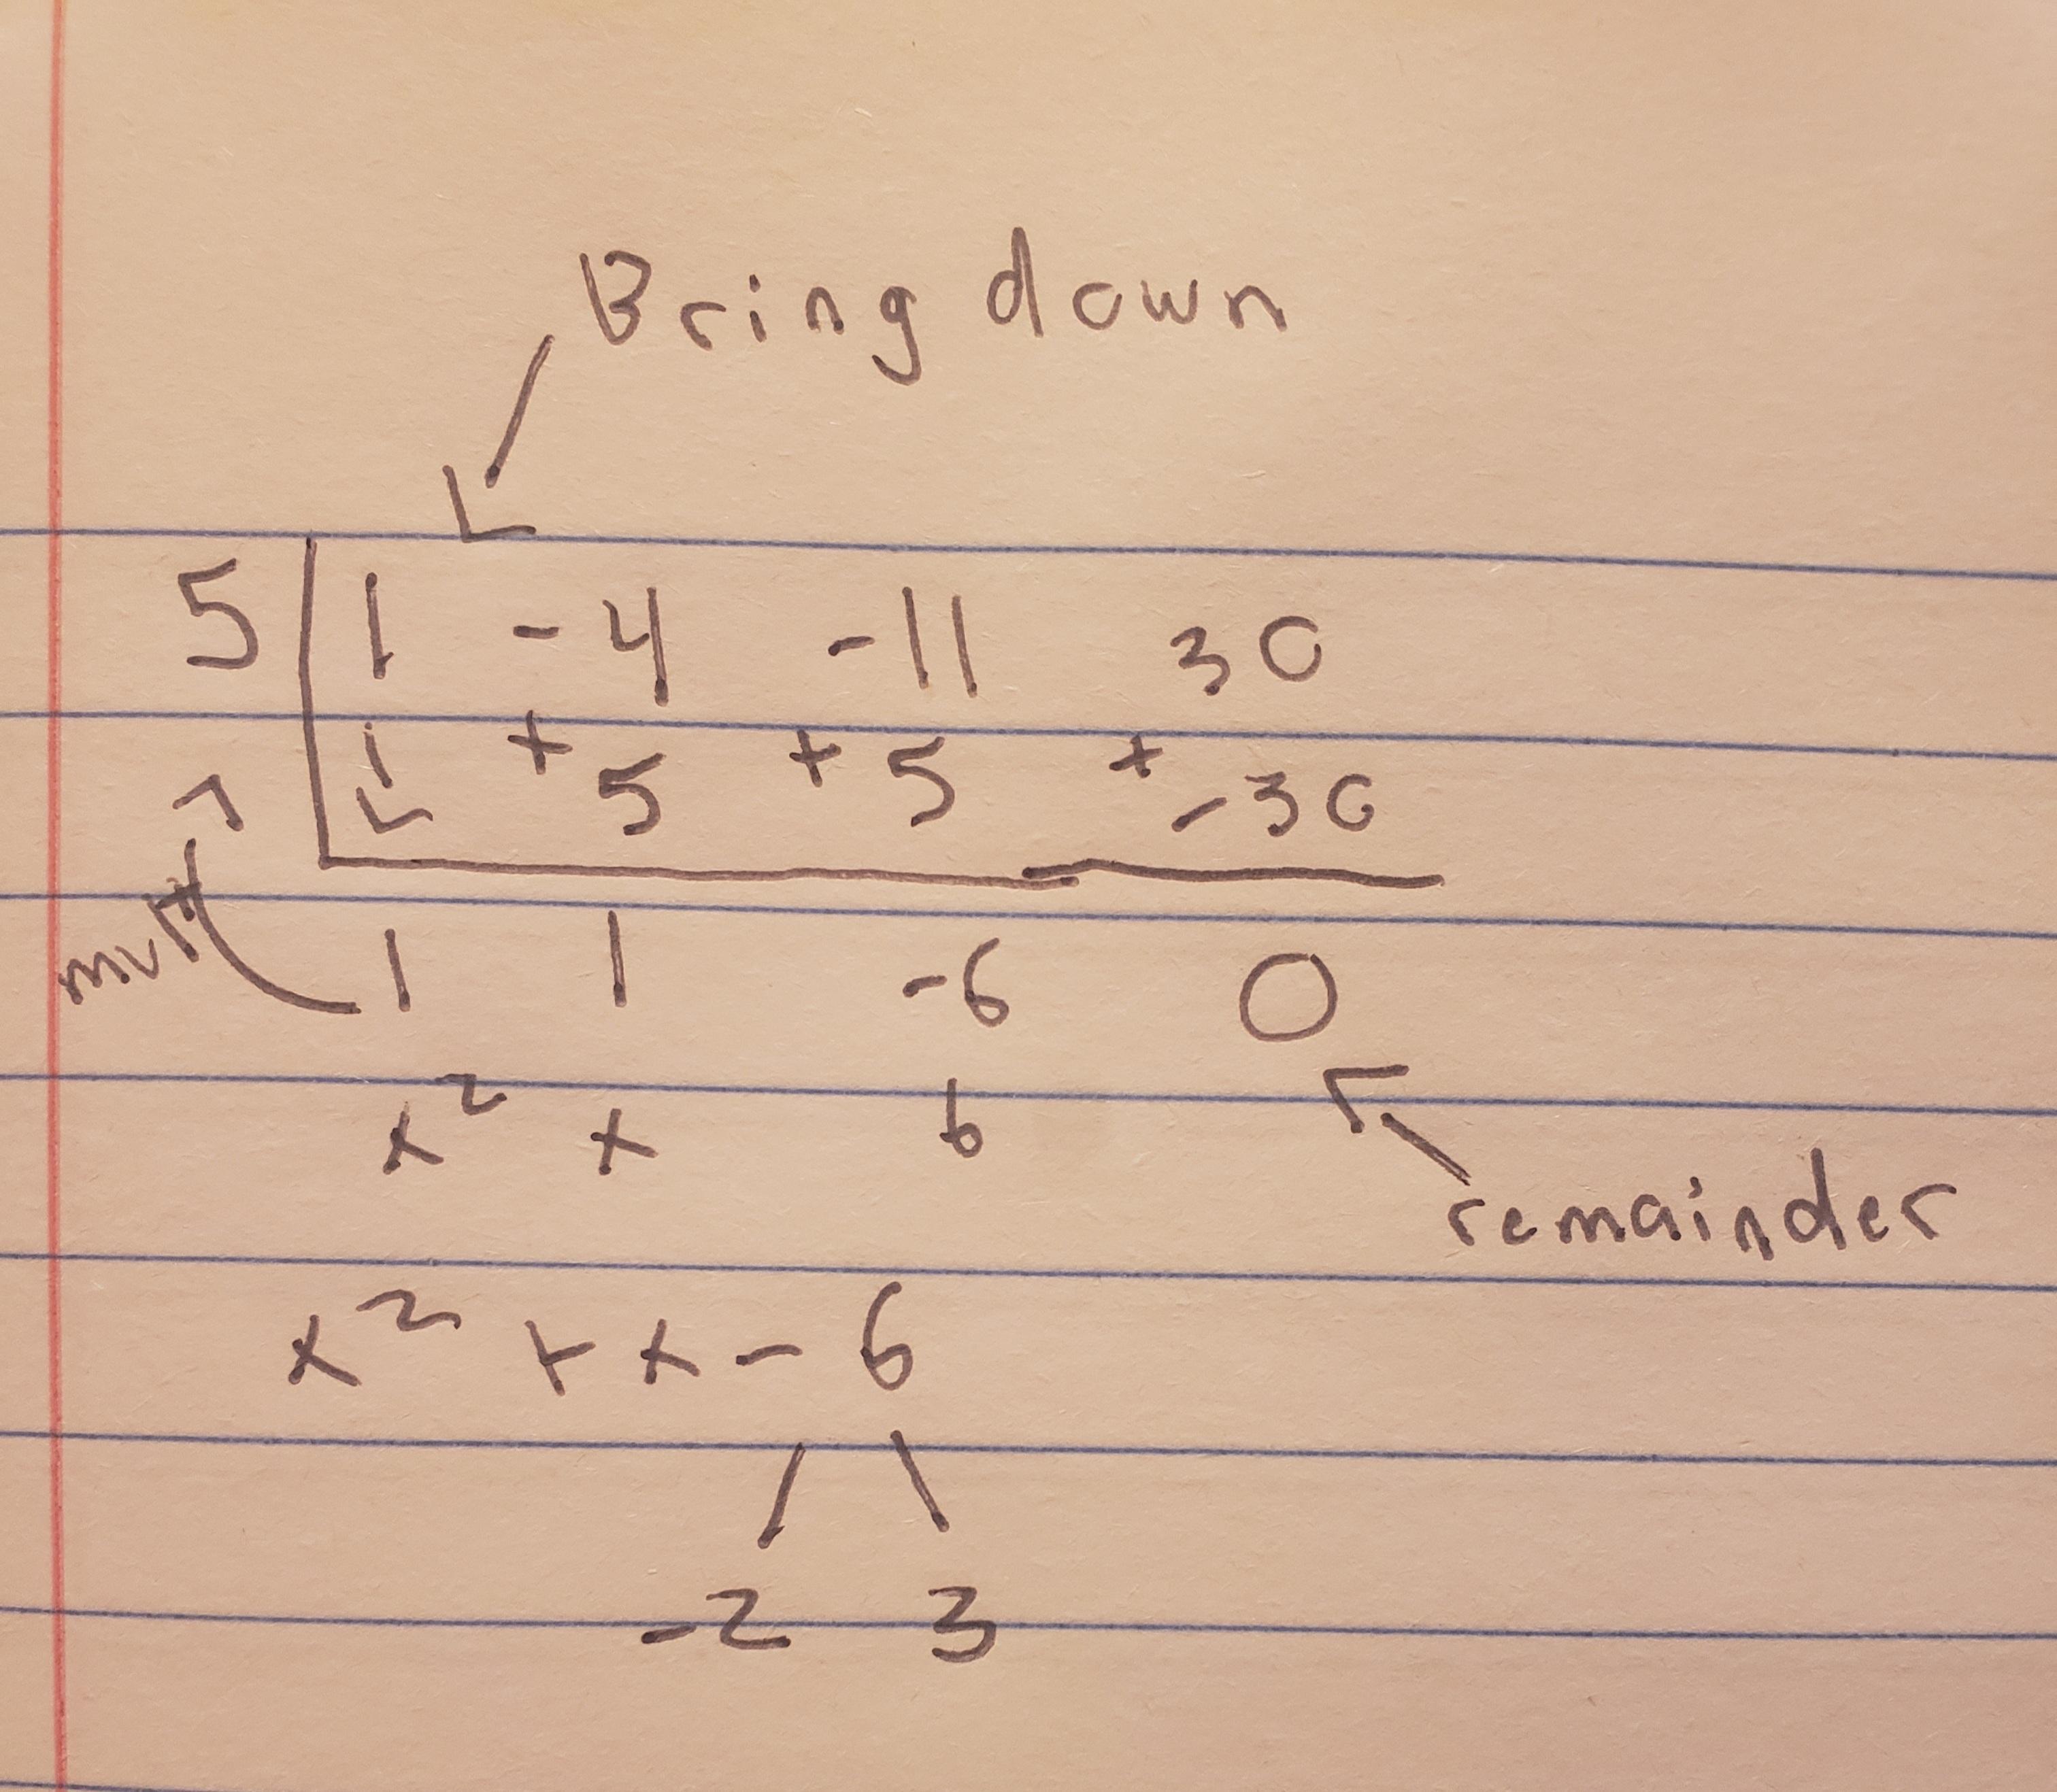 Bring down
5 1 -4 -11 30
+ 5 + 5 + -30
mult
1 1 -6 0
x² x 6
remainder
x² + x - 6
-2 3